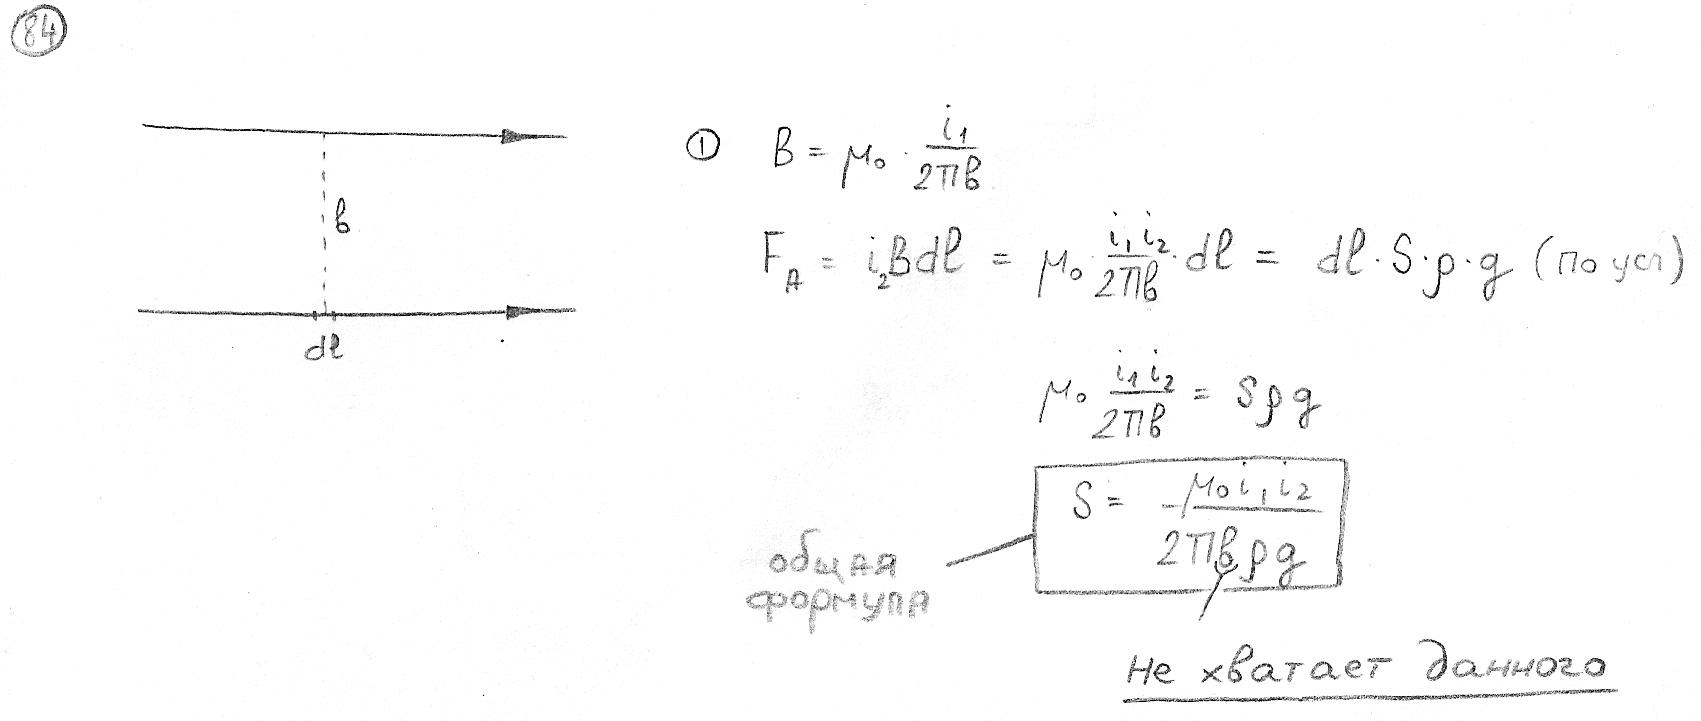 84
① B = μ₀ · i₁/2πв
F_A = i₂Bdl = μ₀ · i₁i₂/2πв · dl = dl·S·ρ·g (по усл)
в
dl
μ₀ i₁i₂/2πв = Sρg
S = μ₀i₁i₂/2πвρg
общая
формула
не хватает данного